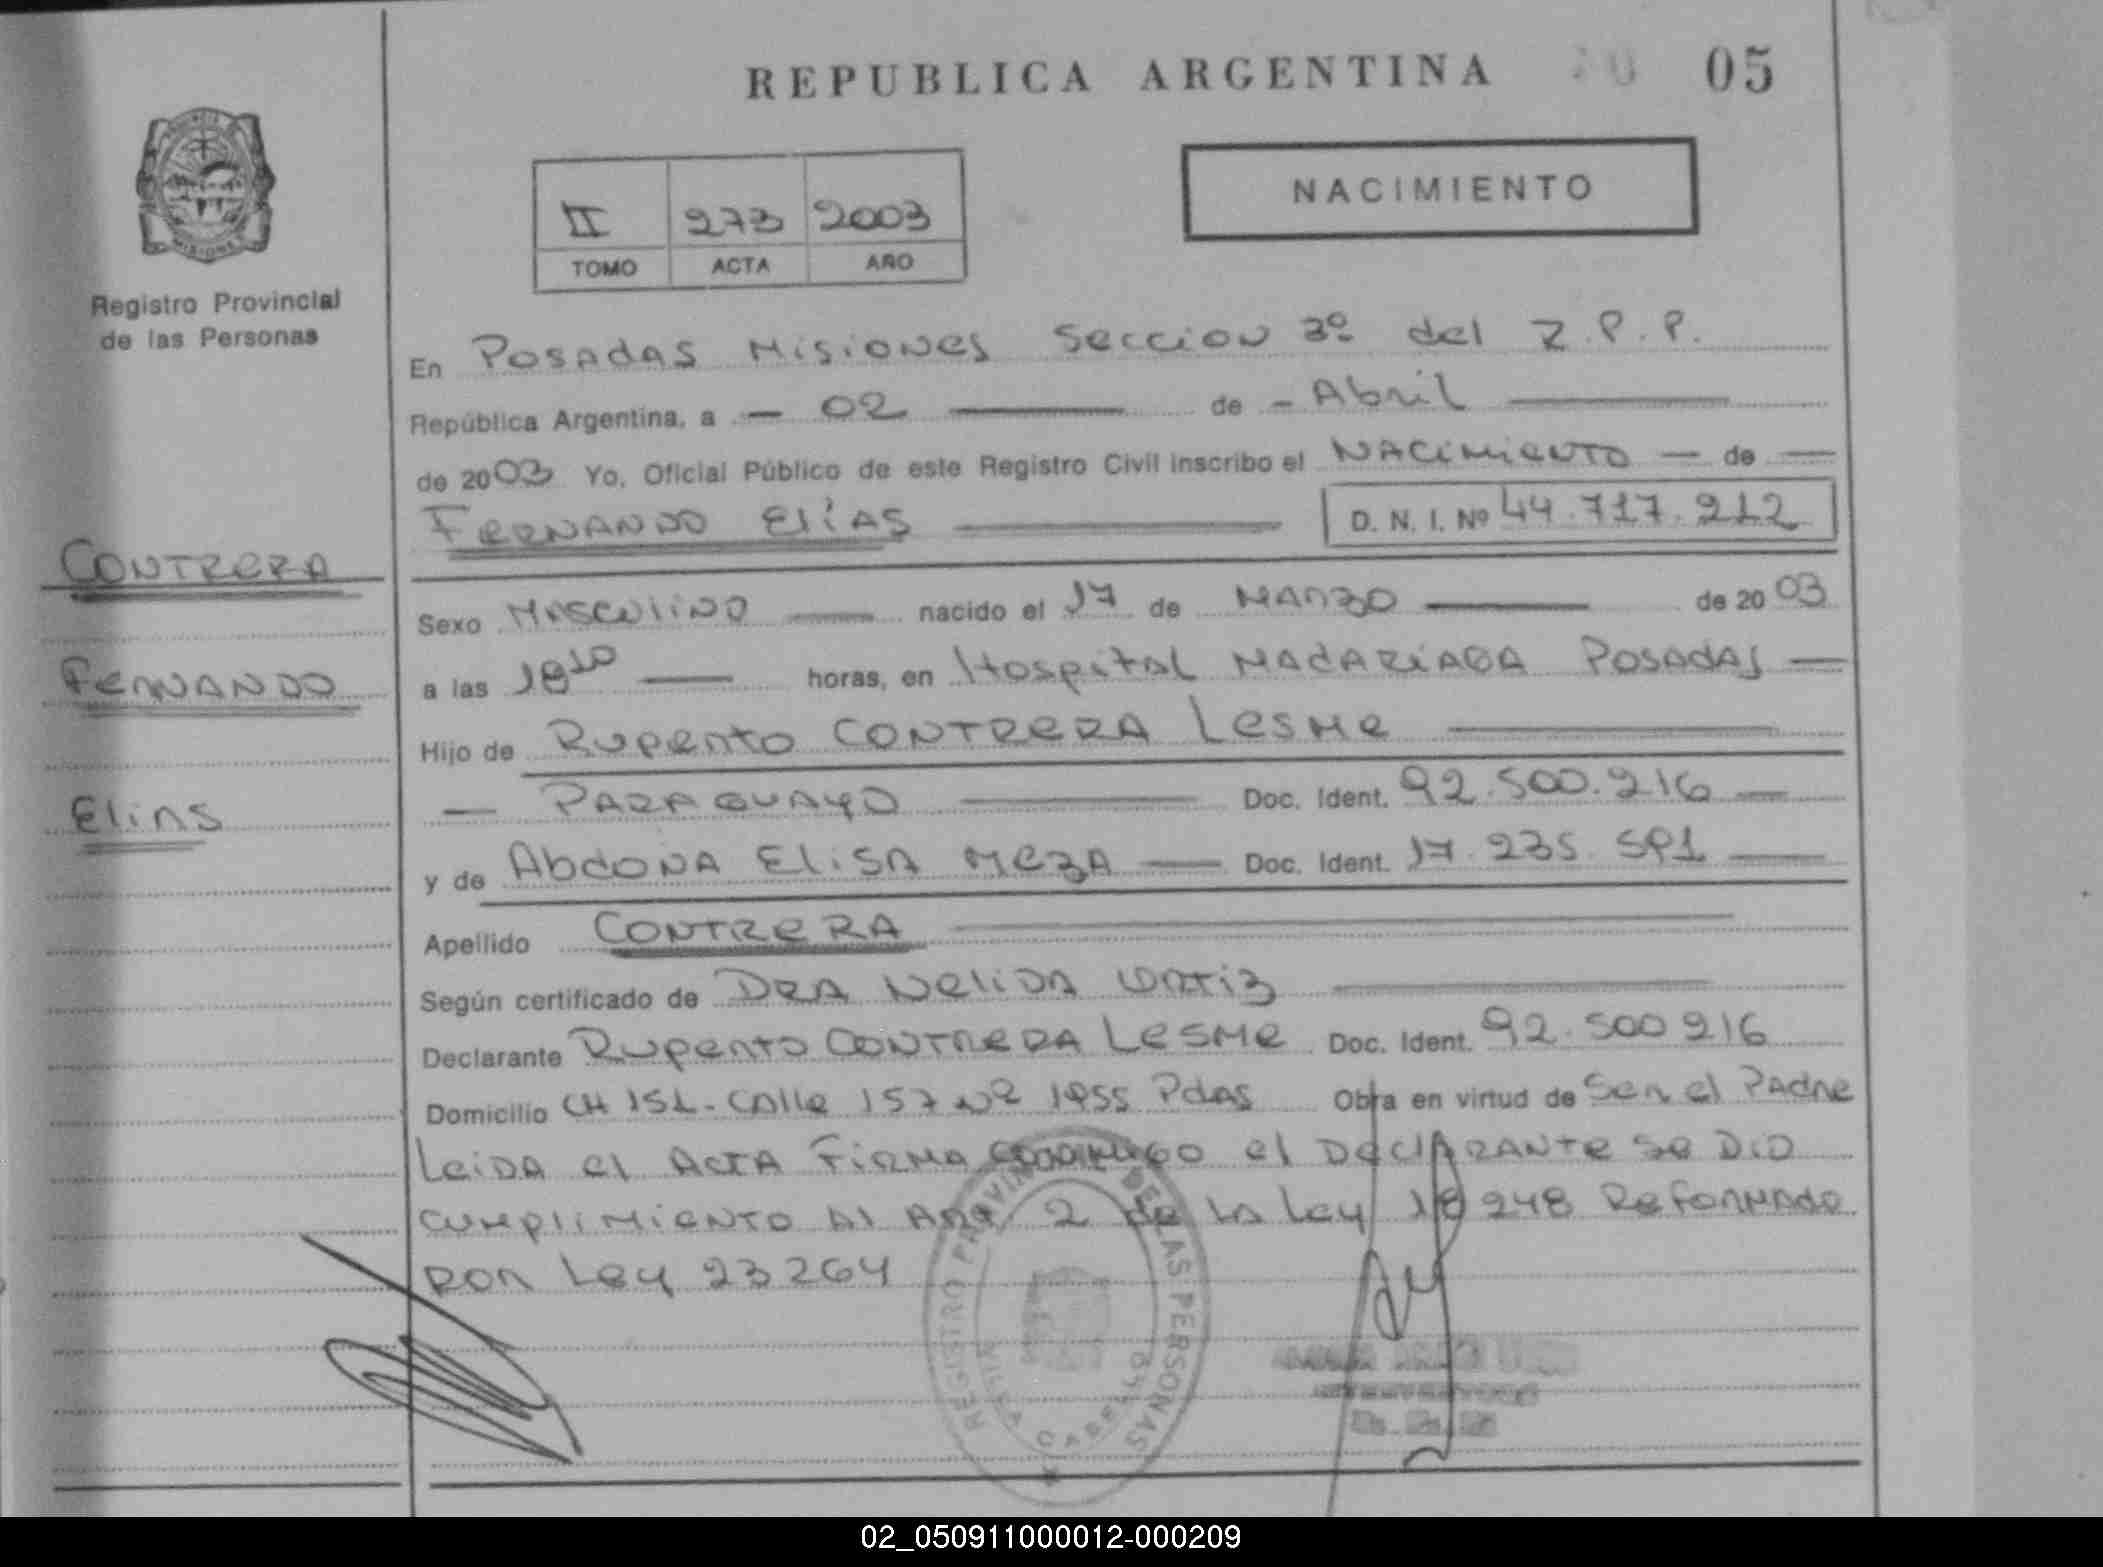 REPUBLICA ARGENTINA 05
PROVINCIA DE
MISIONES
Registro Provincial
de las Personas
II 273 2003
TOMO ACTA AÑO
NACIMIENTO
En Posadas Misiones Seccion 3º del R.P.P.
República Argentina, a — 02 — de - Abril —
de 2003 Yo, Oficial Público de este Registro Civil inscribo el NACIMIENTO — de —
FERNANDO ELIAS — D. N. I. Nº 44.717.212
CONTRERA
Sexo MASCULINO — nacido el 17 de MARZO — de 2003
FERNANDO
a las 18 — horas, en Hospital MADARIAGA POSADAS —
Hijo de Ruperto CONTRERA Lesme —
— PARAGUAYO — Doc. Ident. 92.500.216 —
Elias
y de Abdona Elisa Meza — Doc. Ident. 17.235.591 —
Apellido CONTRERA —
Según certificado de DRA Nelida Ortiz —
Declarante Ruperto CONTRERA Lesme Doc. Ident. 92.500216
Domicilio CH 151-Calle 157 Nº 1955 Pdas Obra en virtud de Ser el Padre
Leida el Acta Firma conmigo el Declarante se Dio
cumplimiento Al Art 2 de la Ley 18248 Reformado
por Ley 23264
REGISTRO PROVINCIAL DE LAS PERSONAS
VILLA CABELLO
02_050911000012-000209